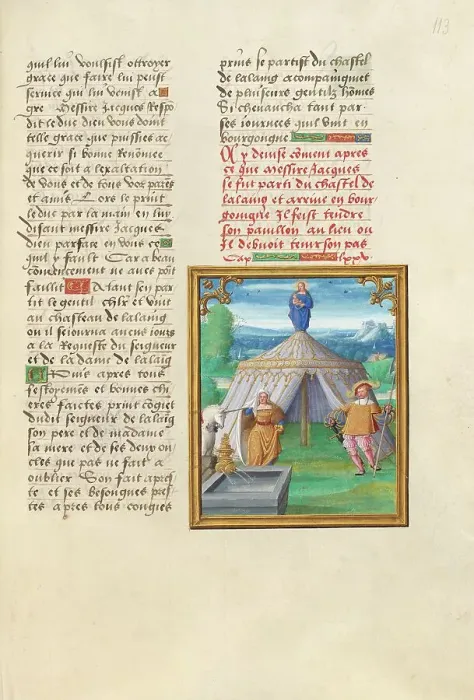 113
quil lui voulsist ottroyer
grace que faire lui peust
service qui lui venist a
gre Messire Jacques Respo
dit le duc dieu vous doint
telle grace que puissies ac
querir si bonne Renomee
que ce soit a lexaltation
de vous et de tous voz parens
et amis Lors le print
le duc par la main en luy
disant messire Jacques
dieu parface en vous ce
quil y fault Car a beau
commencement ne aues point
failli Et Atant sen par
tit le gentil chlr et vint
au chasteau de lalaing
ou il seiourna aucuns iours
a la Requeste du seigneur
et de la dame de lalaig
Et Puis apres tous
festoyemens et bonnes chi
eres faictes print cogiet
dudit seigneur de lalaing
son pere et de madame
sa mere et de ses deux on
cles que pas ne fait a
oublier Son fait apres
te et ses besongnes pres
tes apres tous congies
prins se partist du chastel
de lalaing acompaigniet
de plusieurs gentilz homes
Si cheuaucha tant par
ses iournees quil vint en
bourgongne
Cy deuise coment apres
ce que messire Jacques
se fut parti du chastel de
lalaing et arriue en bour
gongne Il feist tendre
son pauillon au lieu ou
Il debuoit tenir son pas
Cap lxxv